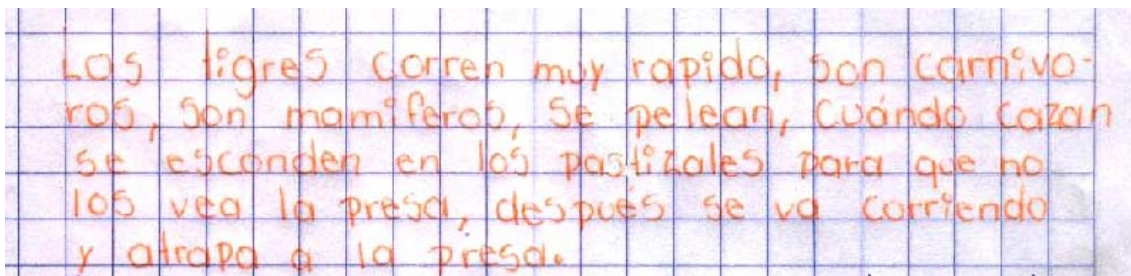 Los tigres corren muy rapido, son carnivo-
ros, son mamiferos, se pelean, Cuándo cazan
se esconden en los pastizales para que no
los vea la presa, después se va corriendo
y atrapa a la presa.